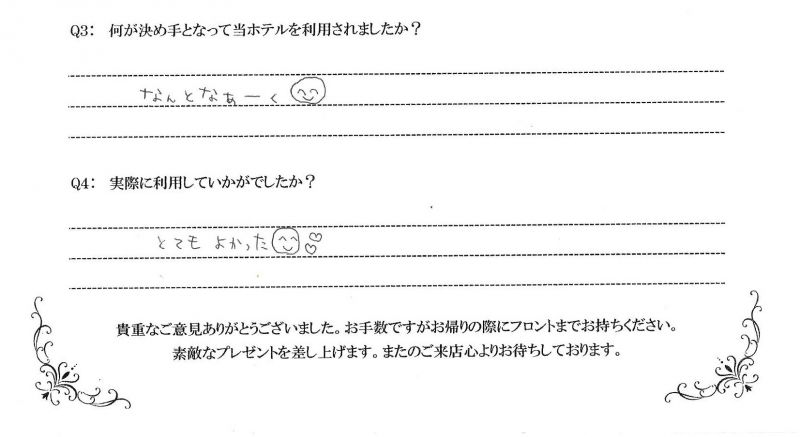 Q3: 何が決め手となって当ホテルを利用されましたか？
なんとなぁーく
Q4: 実際に利用していかがでしたか？
とてもよかった
貴重なご意見ありがとうございました。お手数ですがお帰りの際にフロントまでお持ちください。
素敵なプレゼントを差し上げます。またのご来店心よりお待ちしております。